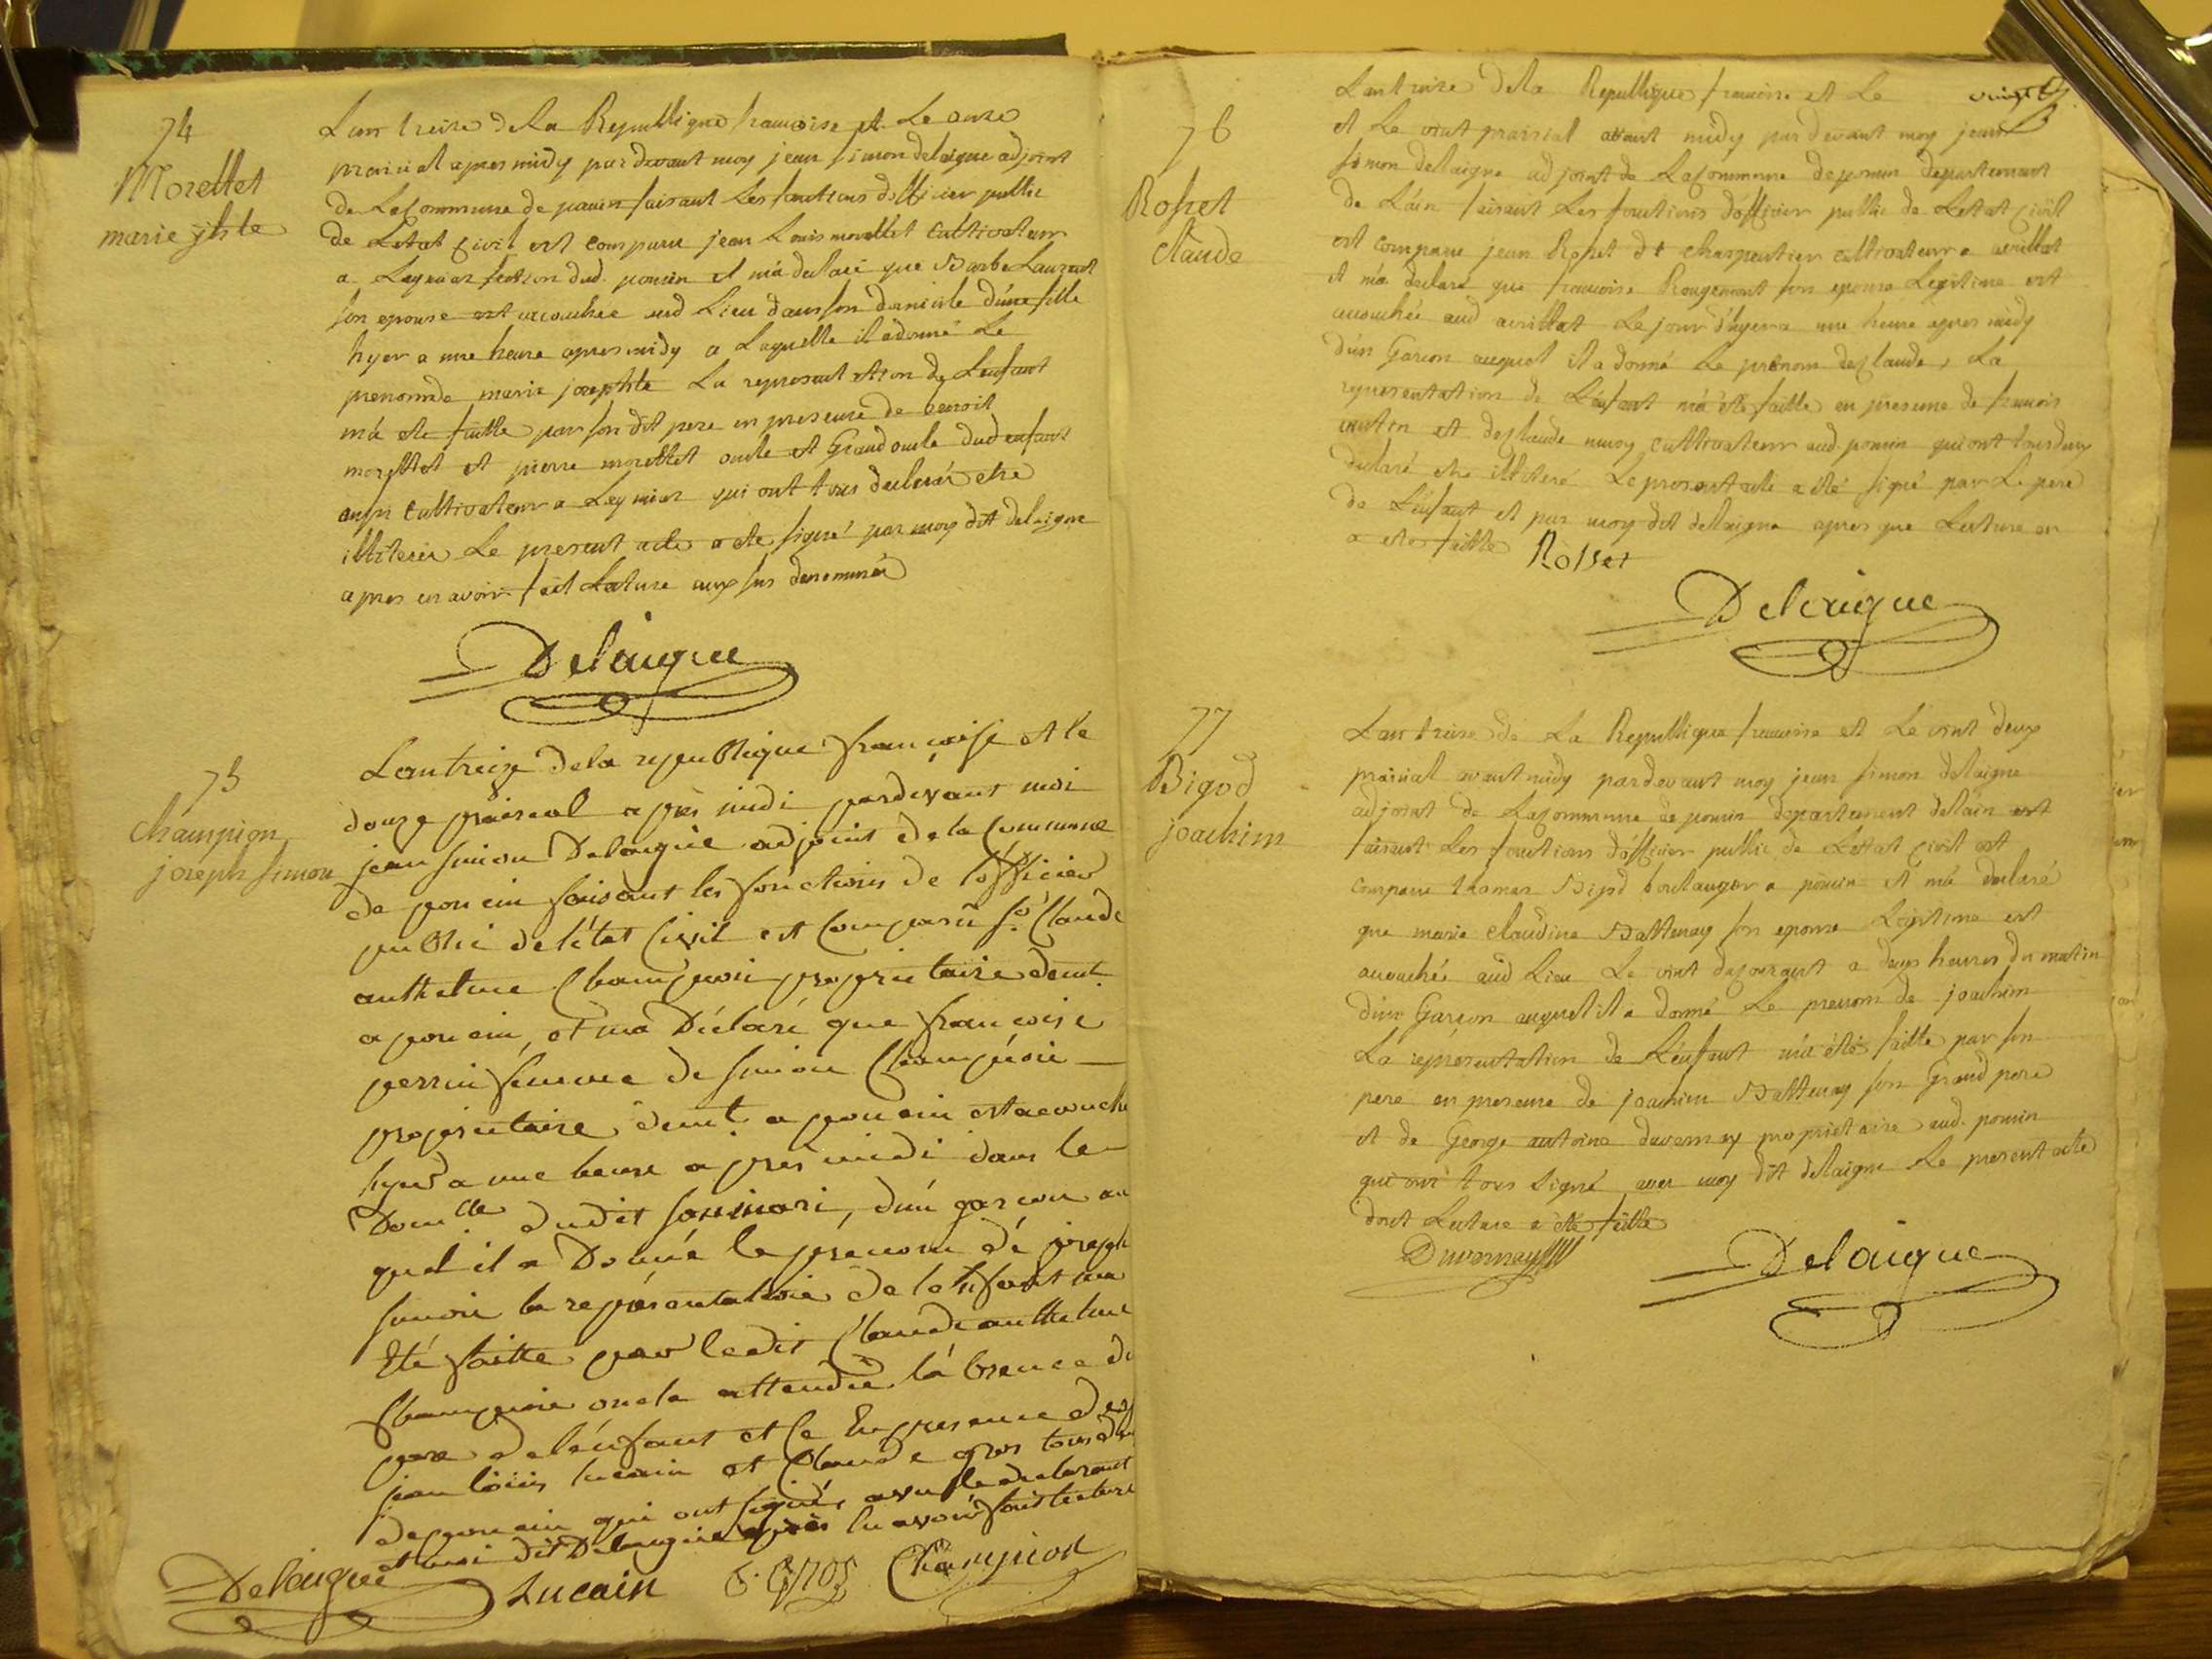 74
Morettet
marie jhte
Lan treize de La Republique francoise et Le onze
prairial apres midy par devant moy jean simon delaigue adjoint
de La Commune de poncin faisant Les fonctions dofficier public
de Letat Civil est comparu jean Louis morettet Cultivateur
a Leymiar section dud. poncin et m'a declaré que Barbe Laurent
son epouse est accouchée aud Lieu dans son domicile d'une fille
hyer a une heure apres midy a Laquelle il a donné Le
prenom de marie josephte La representation de Lenfant
m'a eté faitte par son dit pere en presence de benoit
morettet et pierre morettet oncle et Grand oncle dud enfant
aussi Cultivateur a Leymiar qui ont tous declaré etre
illiteré Le present acte a ete signé par moy dit delaigue
apres en avoir fait Lecture aux sus denommés
Delaigue
75
Champion
joseph simon
Lan treize de la republique francoise et le
douze prairial apres midi pardevant moi
jean simon Delaigue adjoint de la Commune
de poncin faisant les fonctions de l'officier
public de l'état Civil est Comparu sr. Claude
anthelme Champion proprietaire demt.
a poncin, et m'a Déclaré que francoise
perrin femme de simon Champion
proprietaire demt. a poncin est acouché
hyer a une heure apres midi dans le
Domlle dudit son mari, d'un garcon au
quel il a Donné le prenom dé joseph
simon la representation de lenfant ma
Eté faitte par ledit Claude anthelme
Champion oncle attendu labsence du
pere de l'enfant et Ce En presence de
jean loüis lucain et Claude gros tous deux
de poncin qui ont signé, avec le declarant
et moi dit Delaigue après lu avoir fait lecture
Delaigue Lucain C. Gros Champion
76
Rosset
Claude
Lan treize de La Republique francoise et Le vingt
et Le vint prairial avant midy par devant moy jean
simon dellaigue adjoint de La Commune de poncin departement
de L'ain faisant Les fonctions d'officier public de Letat Civil
est comparu jean Rosset dt charpentier cultivateur a avrillat
et m'a declaré que francoise Rougemont son epouse Legitime est
accouchée aud avrillat Le jour d'hyer a une heure apres midy
d'un Garcon auquel il a donné Le prénom de Claude, La
representation de L'enfant m'a été faitte en presence de francois
et de Claude cultivateur aud. poncin qui ont tous deux
declaré etre illiteré Le present acte a été signé par Le pere
de L'enfant et par moy dit dellaigue apres que Lecture en
a ete faitte Rosset
Delaigue
77
Bigod
joachim
Lan treize de La Republique francoise et Le vint deux
prairial avant midy pardevant moy jean simon delaigue
adjoint de La Commune de poncin departement de Lain est
faisant Les fonctions d'officier public de Lettat Civil est
comparu thomas Bigod boulanger a poncin et m'a declaré
que marie claudine Battenay son epouse Legitime est
accouchée aud Lieu Le vint du courant a deux heures du matin
d'un Garcon auquel il a donné Le prenom de joachim
La representation de L'enfant m'a été faitte par son
pere en presence de joachim Battenay son Grand pere
et de George antoine duvernay proprietaire aud. poncin
qui ont tous signé avec moy dit delaigue Le present acte
dont Lecture a été faitte
Duvernay Delaigue